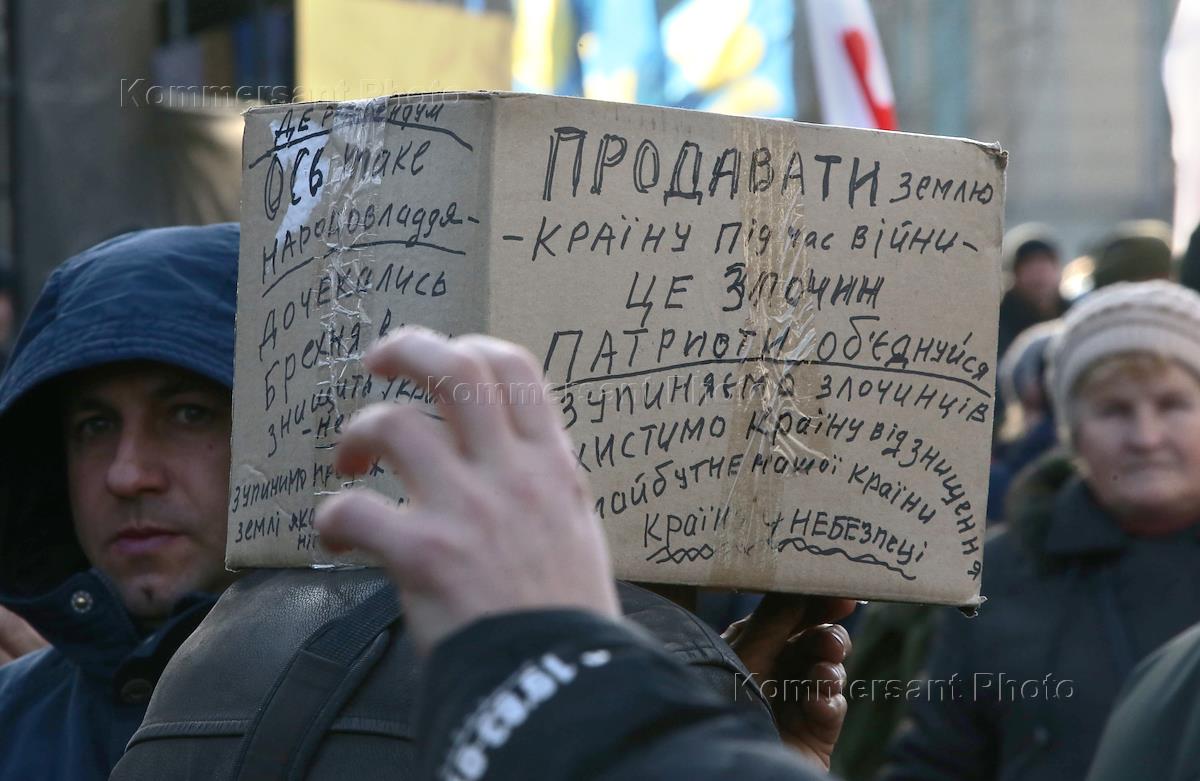 Kommersant Photo
ДЕ РЕФЕРЕНДУМ
ОСЬ ТАКЕ
НАРОДОВЛАДДЯ-
ДОЧЕКАЛИСЬ
БРЕХНЯ В
ЗНИЩИТЬ УКР
ЗУПИНИМО
ЗЕМЛІ
ПРОДАВАТИ ЗЕМЛЮ
-КРАЇНУ ПІД ЧАС ВІЙНИ-
ЦЕ ЗЛОЧИН
ПАТРІОТИ ОБ'ЄДНУЙСЯ
ЗУПИНЯЄМО ЗЛОЧИНЦІВ
КРАЇНУ ВІД ЗНИЩЕННЯ
МАЙБУТНЕ НАШОЇ КРАЇНИ
КРАЇНА У НЕБЕЗПЕЦІ
Kommersant Photo
Kommersant Photo